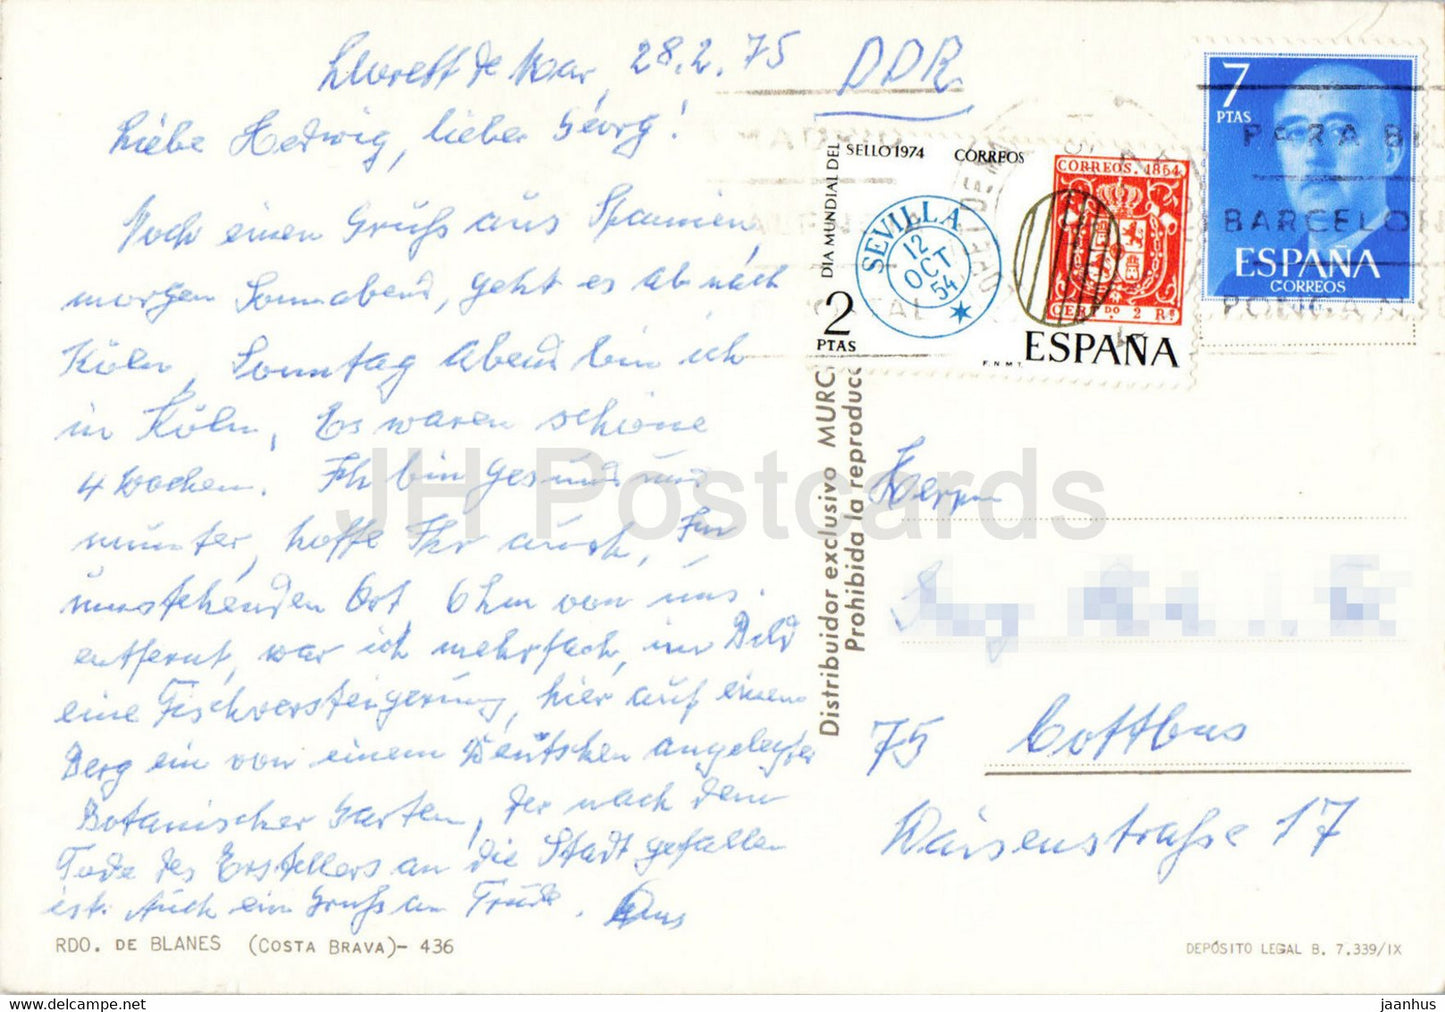 Llorett de Mar, 28.2.75
DDR
Liebe Hedwig, lieber Georg!
Noch einen Gruß aus Spanien,
morgen Sonnabend, geht es ab nach
Köln, Sonntag Abend bin ich
in Köln, Es waren schöne
4 Wochen. Ich bin gesund und
munter, hoffe Ihr auch, Im
umstehenden Ort, 6 km von uns.
entfernt, war ich mehrfach, im Bild
eine Fischversteigerung, hier auf einem
Berg ein von einem Deutschen angelegter
Botanischer Garten, der nach dem
Tode des Erstellers an die Stadt gefallen
ist. Auch ein Gruß an Trude.
RDO. DE BLANES (COSTA BRAVA)- 436
DIA MUNDIAL DEL
SELLO 1974 CORREOS
SEVILLA
12
OCT
54
2
PTAS
CORREOS. 1854
CERTDO. 2 Rs
F.N.M.T.
ESPAÑA
7
PTAS
ESPAÑA
CORREOS
PARA
BARCELON
Distribuidor exclusivo MURC
Prohibida la reproducc
Herrn
75 Cottbus
Waisenstraße 17
DEPÓSITO LEGAL B. 7.339/IX
JH Postcards
jaanhus - www.delcampe.net